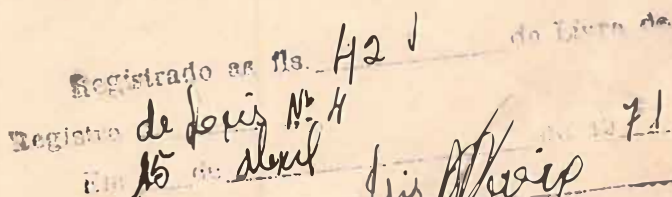 Registrado as fls. 42 v do Livro de
Registro de Leis Nº 4
Em 15 de abril de 1971